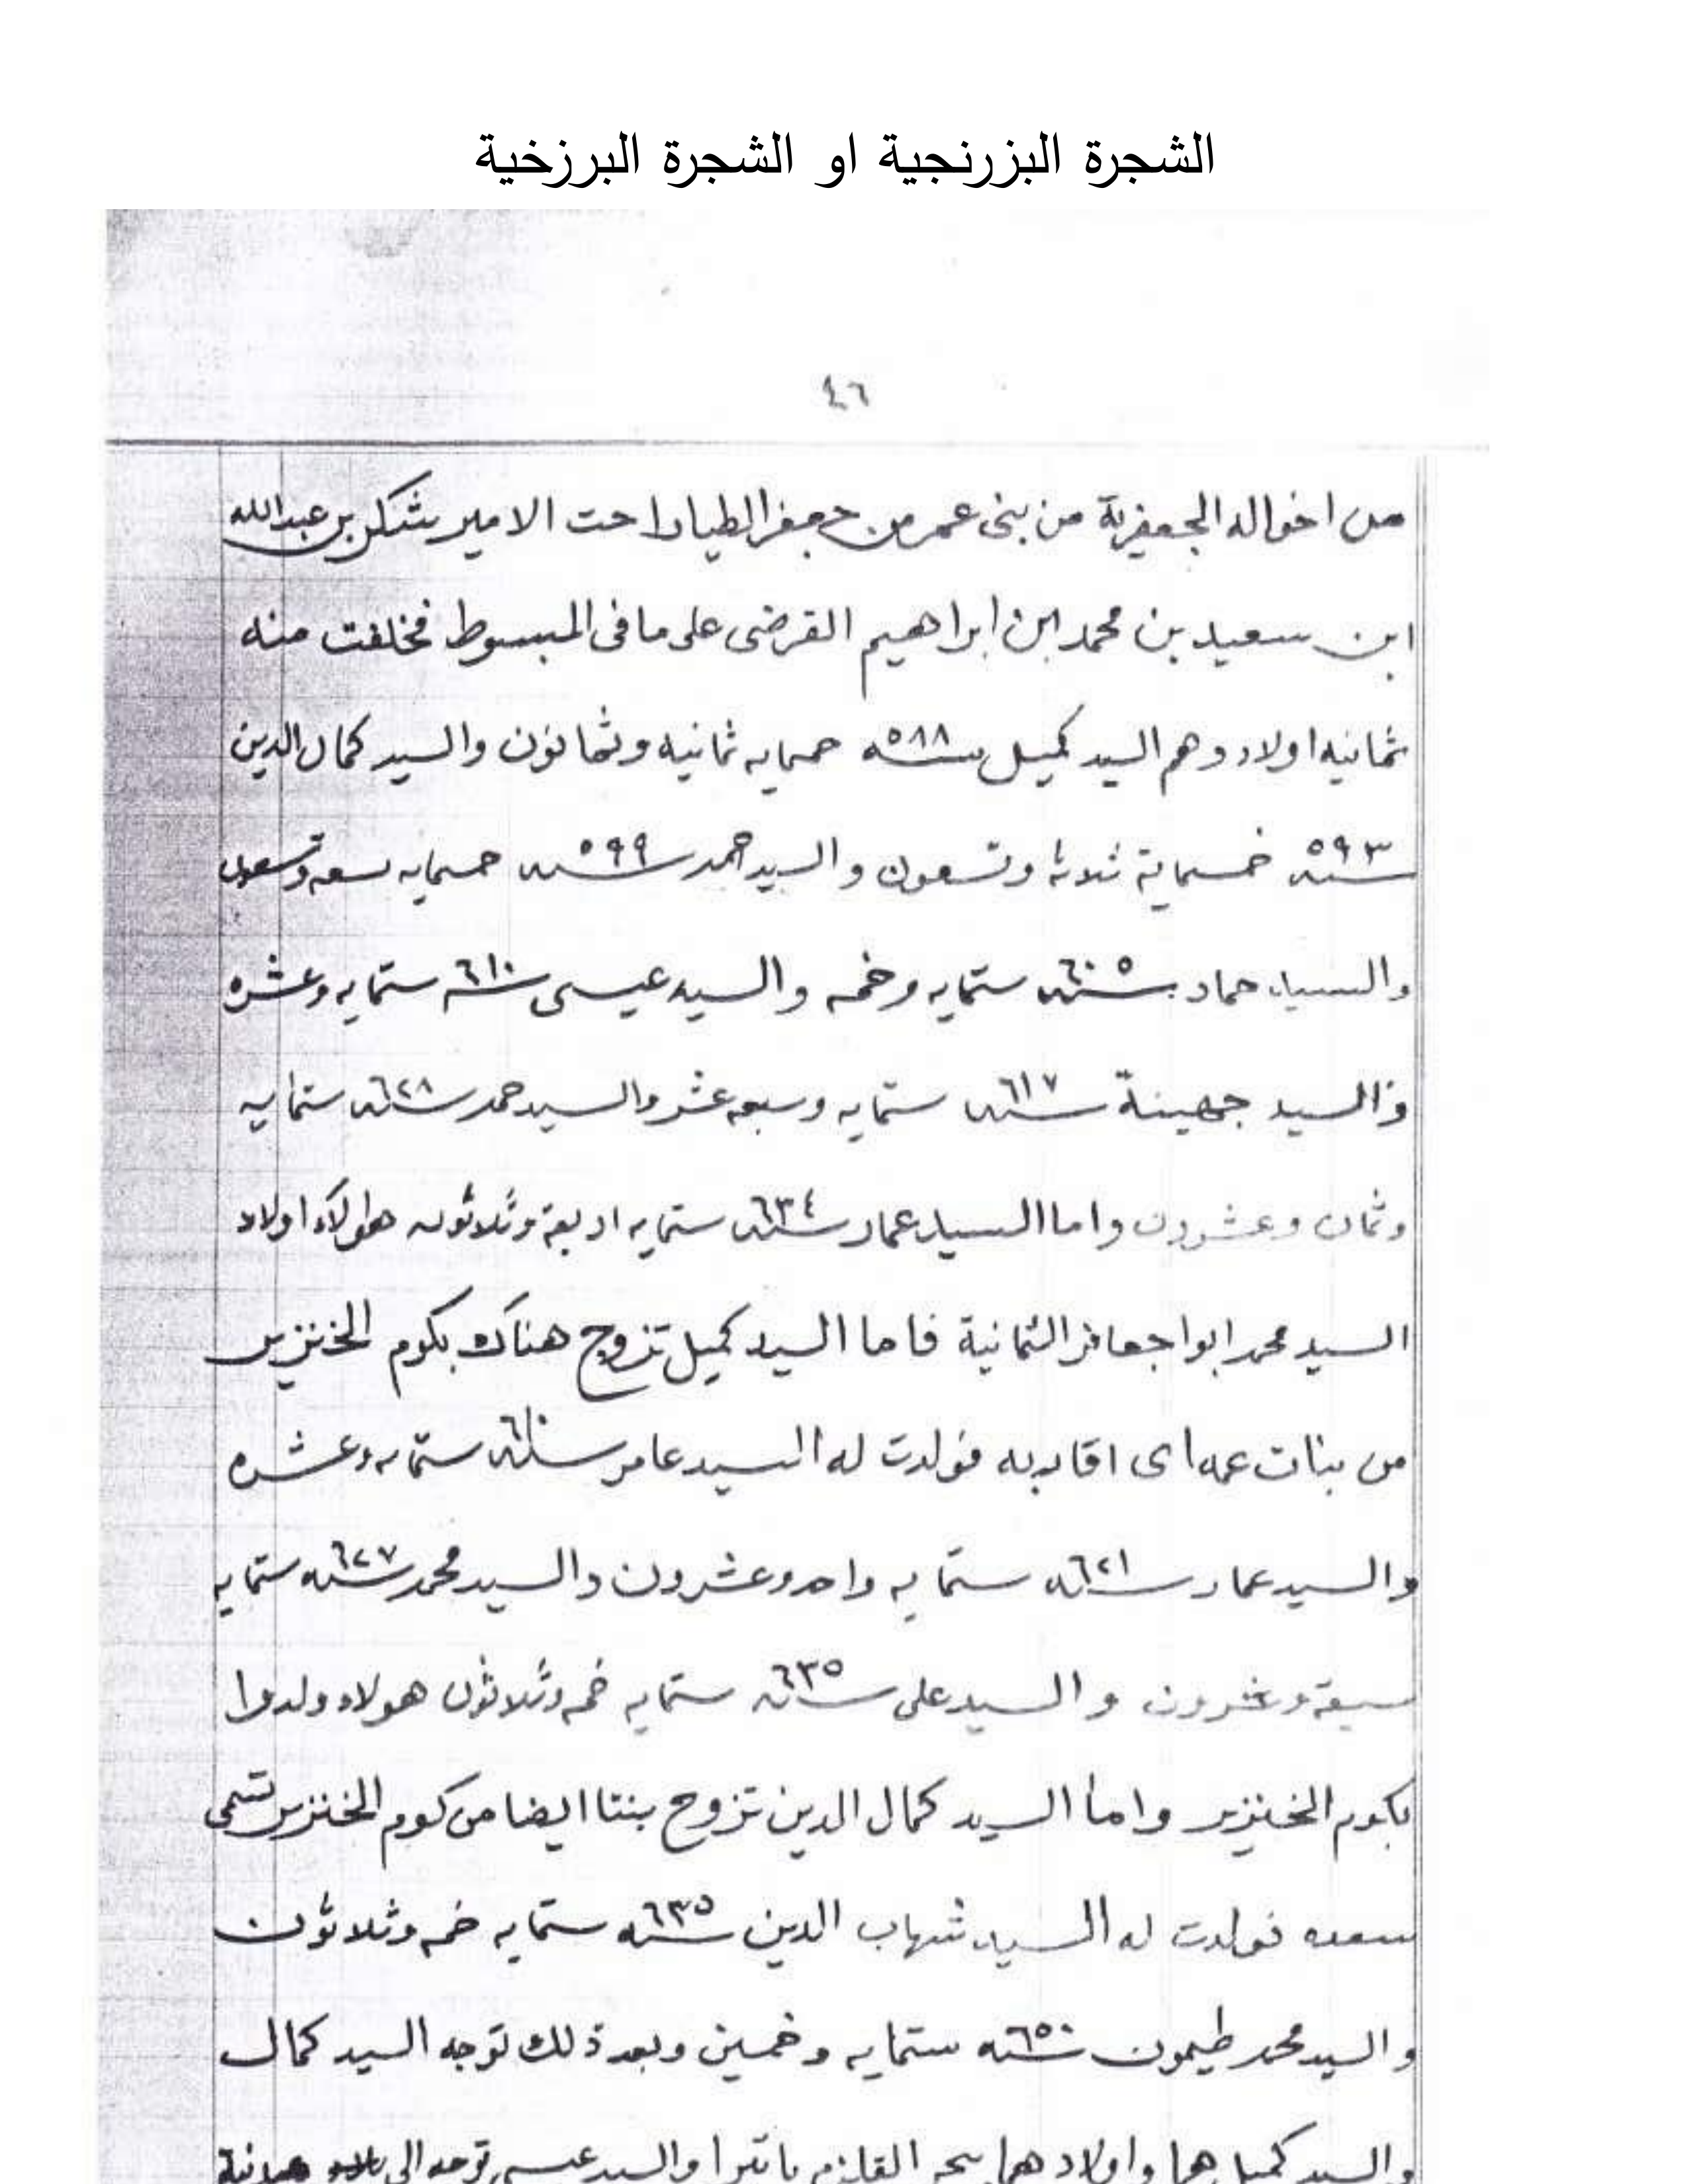 الشجرة البزرنجية او الشجرة البرزخية
٤٦
من اخواله الجعفرية من بنى عمر من جعفر الطيار احت الامير شكر بن عبدالله
ابن سعيد بن محمد ابن ابراهيم القرضى على ما فى المبسوط فخلفت منه
ثمانيه اولاد وهم السيد كميل سنه ٥٨٨ خمسمايه ثمانيه وثمانون والسيد كمال الدين
سنه ٥٩٣ خمسماية ثلاثة وتسعون والسيد احمد سنه ٥٩٩ خمسمايه تسعه وتسعون
والسيد حماد سنه ٦٠٥ ستمايه وخمسه والسيد عيسى سنه ٦١٠ ستمايه وعشره
والسيد جهينة سنه ٦١٧ ستمايه وسبعه عشر والسيد حمد سنه ٦٢٨ ستمايه
وثمان وعشرون واما السيد عمار سنه ٦٣٤ ستمايه اربعة وثلاثون هولاء اولاد
السيد محمد ابوا جعافر الثمانية فاما السيد كميل تزوج هناك بكوم الخنزير
من بنات عمه اى اقاربه فولدت له السيد عامر سنه ٦١٠ ستمايه وعشره
والسيد عمار سنه ٦٢١ ستمايه واحد وعشرون والسيد محمد سنه ٦٢٧ ستمايه
سبعة وعشرون والسيد على سنه ٦٣٥ ستمايه خمسه وثلاثون هولاء ولدوا
بكوم الخنزير واما السيد كمال الدين تزوج بنتا ايضا من كوم الخنزير تسمى
سعده فولدت له السيد شهاب الدين سنه ٦٣٥ ستمايه خمسه وثلاثون
والسيد محمد طيمون سنه ٦٥٠ ستمايه وخمسين وبعد ذلك توجه السيد كمال
والسيد كميل هما واولادهما بحر القلزم والسيد عيسى توجه الى